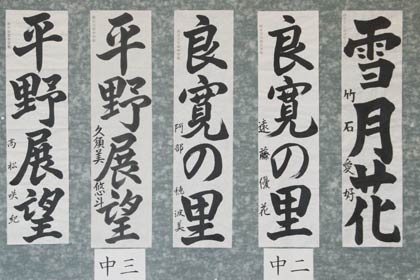 雪月花
竹石愛好
良寛の里
遠藤優花
良寛の里
阿部 悌波美
平野展望
久須美悠斗
平野展望
高松咲紀
中二
中三